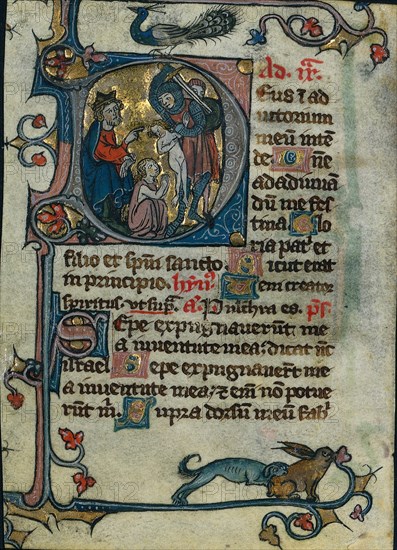 Ad. ix.
Eus i ad
iutorium
meū inte
de  One
ad adiuuā
dū me fes
tina Glo
ria pat et
filio et spūi sancto. Sicut erat
in principio. hym᷒. Uem creator
spiritus. ut sup̄. a. Pulchra es. ps̄.
Sepe expugnauerūt me
a iuuentute mea: dicat nc̄
israel Sepe expugnauerūt me
a iuuentute mea: et em̄ non potue
rūt m̄. Supra dorsū meū fab